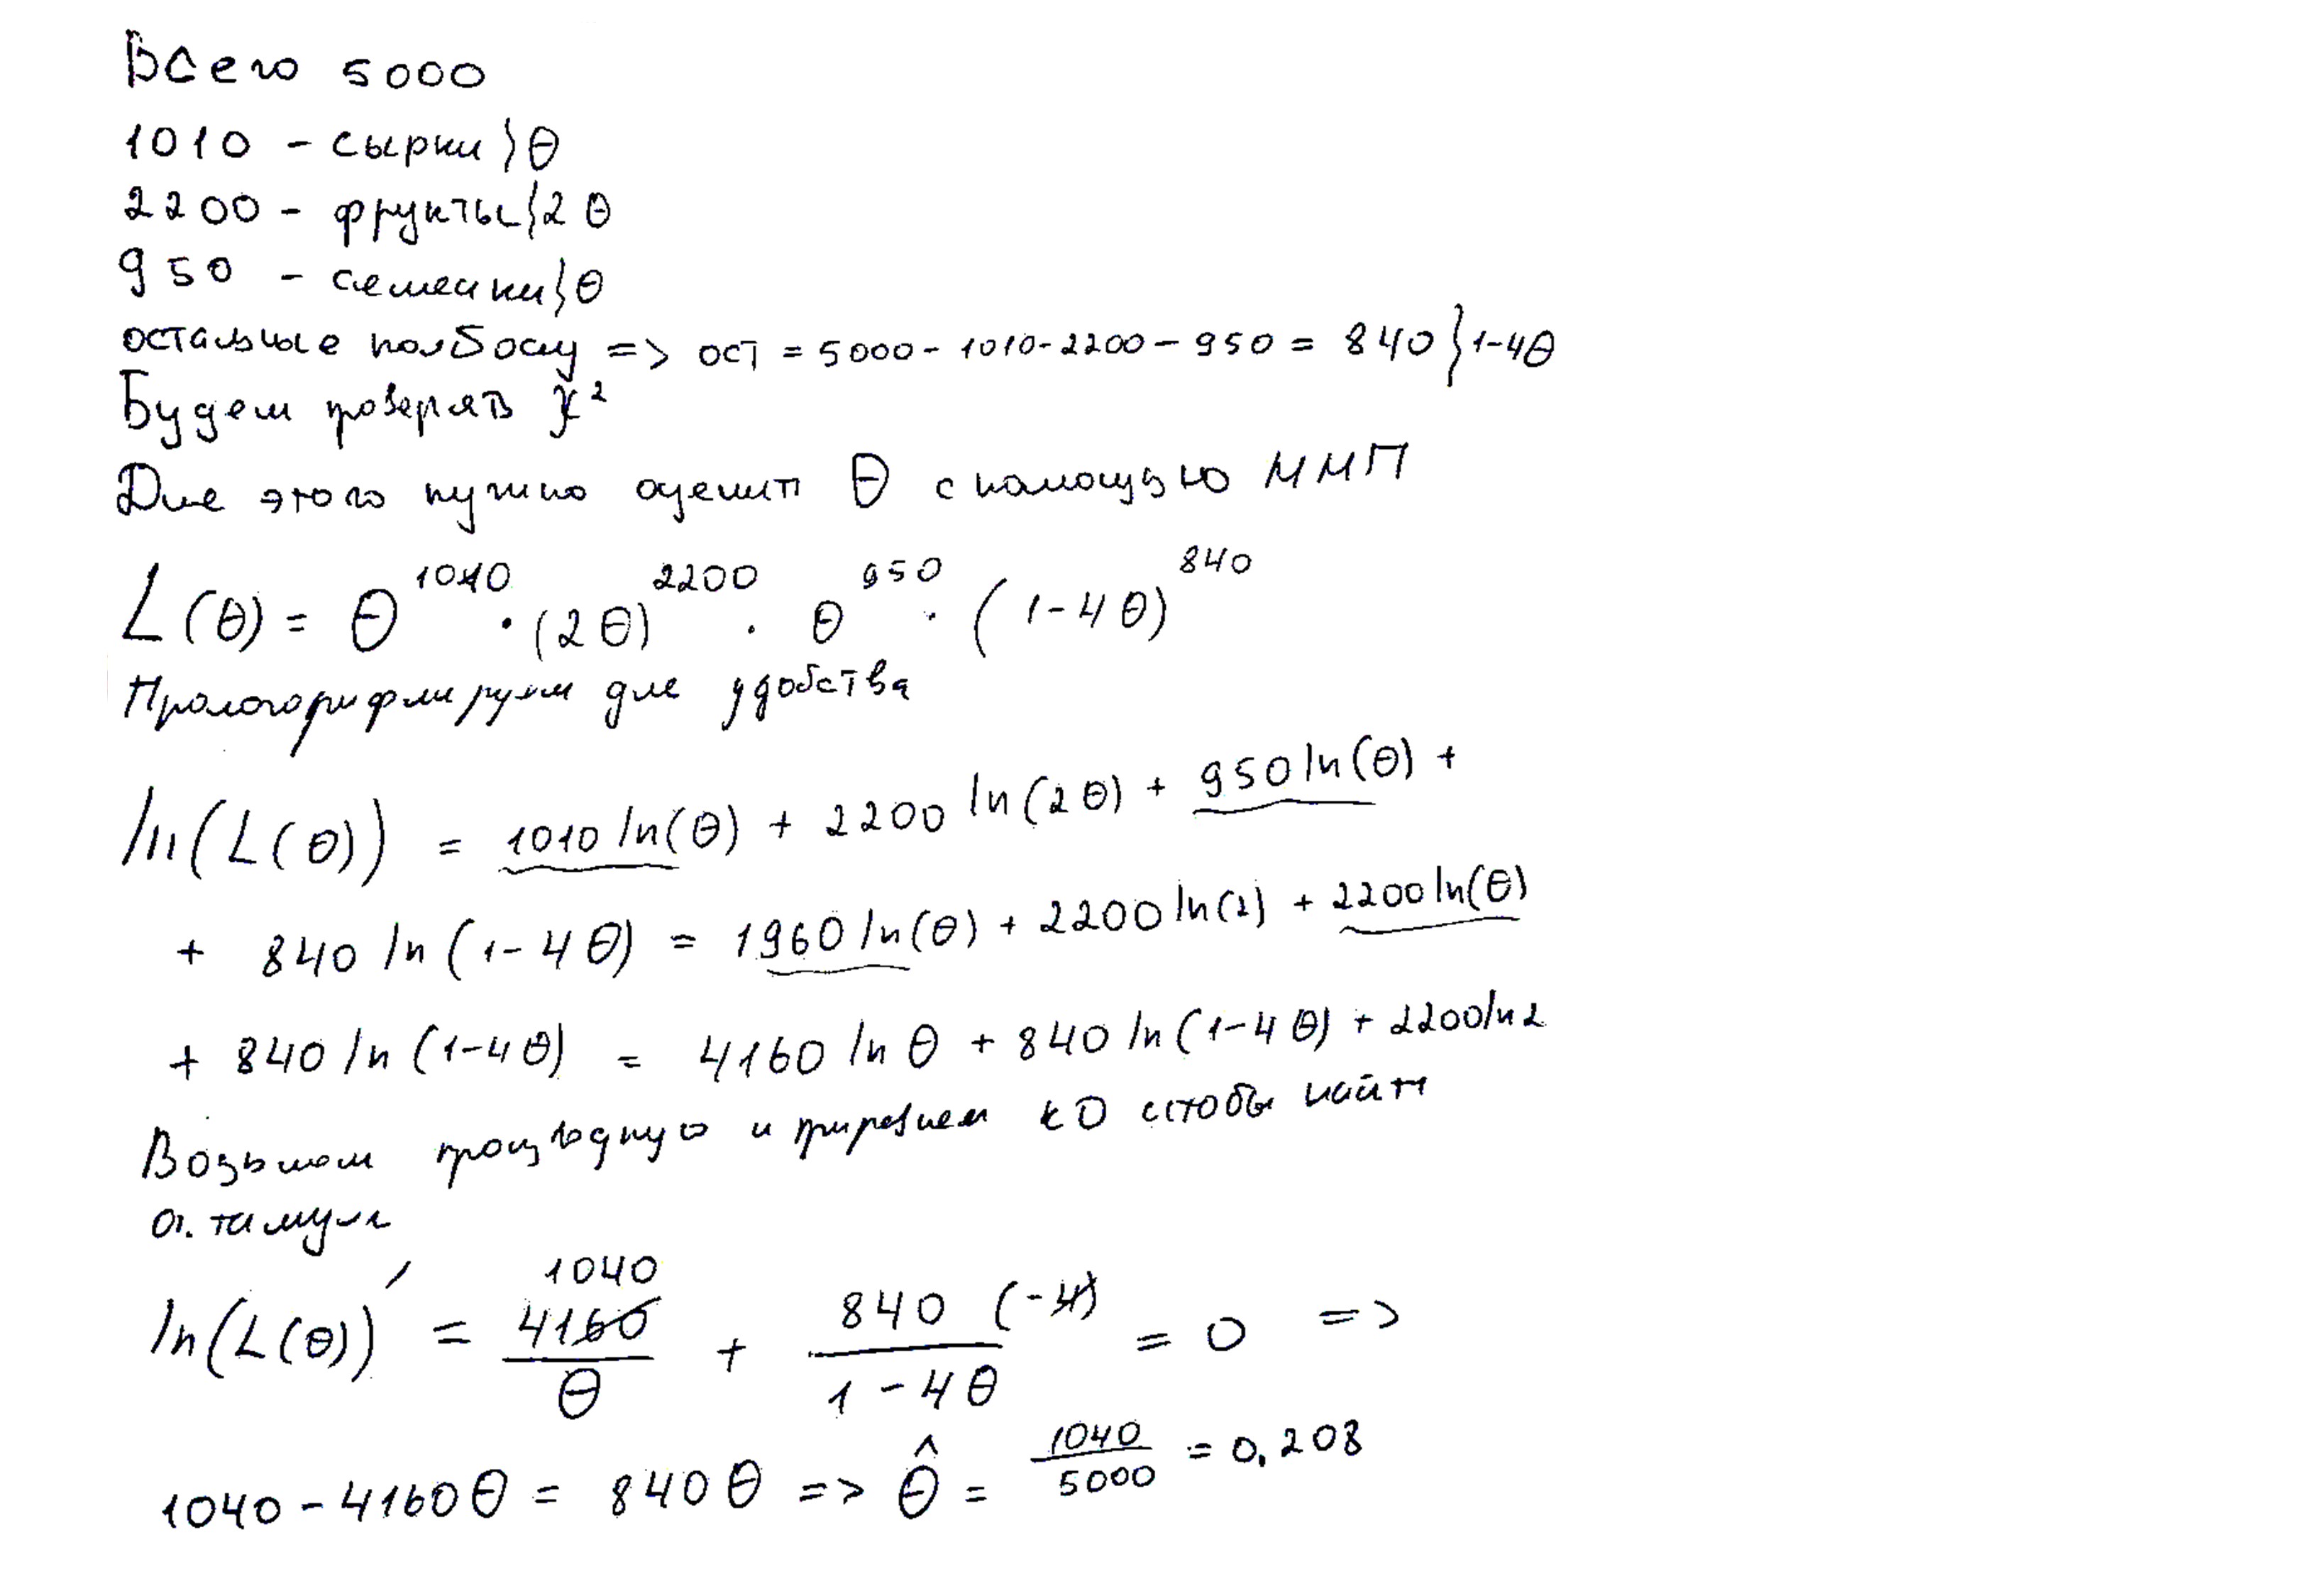 Всего 5000
1010 - сырки } θ
2200 - фрукты } 2θ
950 - семечки } θ
остальные колбасу => ост = 5000 - 1010 - 2200 - 950 = 840 } 1-4θ
Будем проверять χ²
Для этого нужно оценить θ с помощью ММП
L(θ) = θ^1010 · (2θ)^2200 · θ^950 · (1-4θ)^840
Прологорифмируем для удобства
ln(L(θ)) = 1010 ln(θ) + 2200 ln(2θ) + 950 ln(θ) +
+ 840 ln(1-4θ) = 1960 ln(θ) + 2200 ln(2) + 2200 ln(θ)
+ 840 ln(1-4θ) = 4160 ln θ + 840 ln(1-4θ) + 2200 ln 2
Возьмем производную и приравняем к 0 чтобы найти
оптимум
1040
ln(L(θ))′ = 4160/θ + 840 (-4)/(1-4θ) = 0 =>
1040 - 4160θ = 840θ => θ̂ = 1040/5000 = 0.208